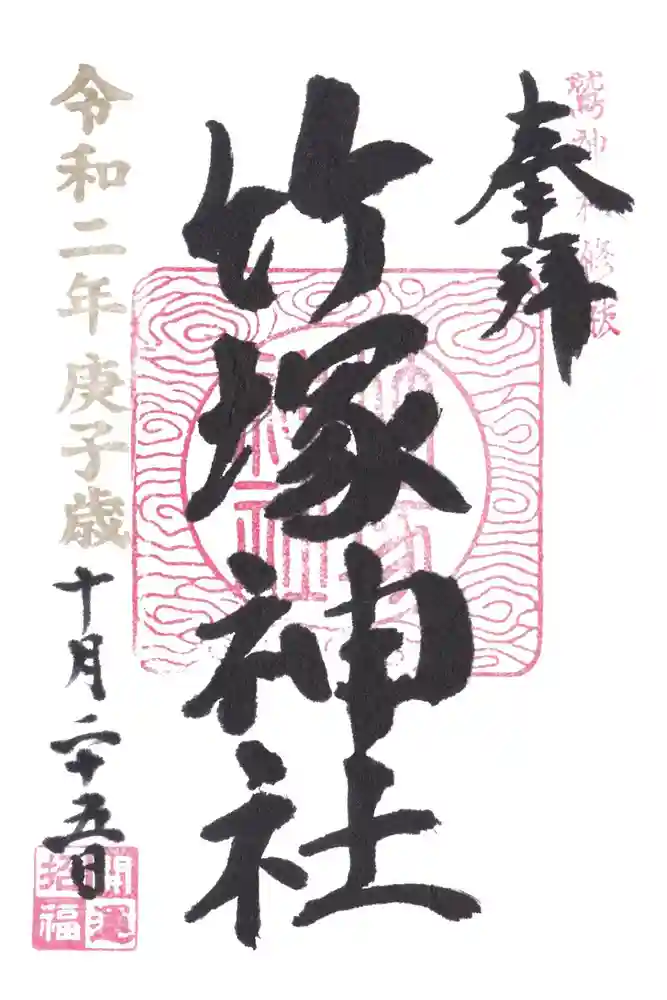 鷲神社 修祓
奉拝
竹塚神社
令和二年庚子歳
十月二十五日
開運
招福